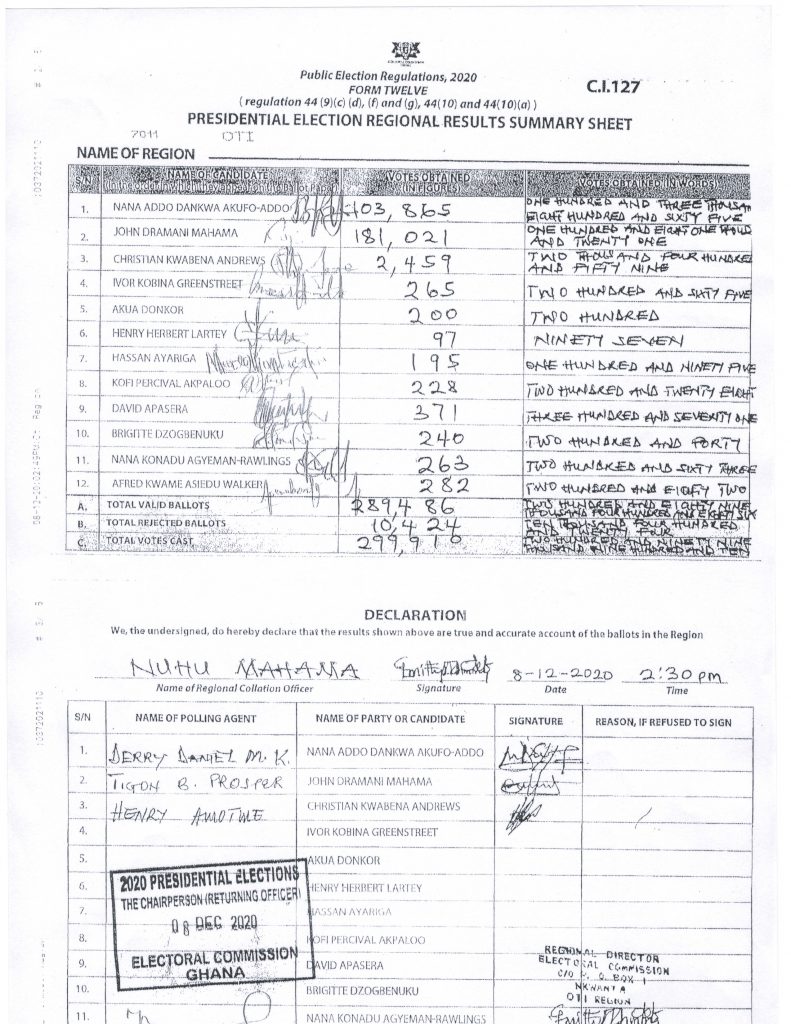 Public Election Regulations, 2020
FORM TWELVE
C.I.127
( regulation 44 (9)(c) (d), (f) and (g), 44(10) and 44(10)(a) )
PRESIDENTIAL ELECTION REGIONAL RESULTS SUMMARY SHEET
7011 OTI
NAME OF REGION
S/N NAME OF CANDIDATE VOTES OBTAINED (IN FIGURES) VOTES OBTAINED (IN WORDS)
1. NANA ADDO DANKWA AKUFO-ADDO 103,865 ONE HUNDRED AND THREE THOUSAN EIGHT HUNDRED AND SIXTY FIVE
2. JOHN DRAMANI MAHAMA 181,021 ONE HUNDRED AND EIGHT ONE THOUS AND TWENTY ONE
3. CHRISTIAN KWABENA ANDREWS 2,459 TWO THOUSAND FOUR HUNDRED AND FIFTY NINE
4. IVOR KOBINA GREENSTREET 265 TWO HUNDRED AND SIXTY FIVE
5. AKUA DONKOR 200 TWO HUNDRED
6. HENRY HERBERT LARTEY 97 NINETY SEVEN
7. HASSAN AYARIGA 195 ONE HUNDRED AND NINETY FIVE
8. KOFI PERCIVAL AKPALOO 228 TWO HUNDRED AND TWENTY EIGHT
9. DAVID APASERA 371 THREE HUNDRED AND SEVENTY ONE
10. BRIGITTE DZOGBENUKU 240 TWO HUNDRED AND FORTY
11. NANA KONADU AGYEMAN-RAWLINGS 263 TWO HUNDRED AND SIXTY THREE
12. AFRED KWAME ASIEDU WALKER 282 TWO HUNDRED AND EIGHTY TWO
A. TOTAL VALID BALLOTS 289,486 TWO HUNDRED AND EIGHTY NINE THOUSAND FOUR HUNDRED AND EIGHT SIX
B. TOTAL REJECTED BALLOTS 10,424 TEN THOUSAND FOUR HUNDRED AND TWENTY FOUR
C. TOTAL VOTES CAST 299,910 TWO HUNDRED AND NINETY NINE THOUSAND NINE HUNDRED AND TEN
DECLARATION
We, the undersigned, do hereby declare that the results shown above are true and accurate account of the ballots in the Region
NUHU MAHAMA 8-12-2020 2:30 pm
Name of Regional Collation Officer Signature Date Time
S/N NAME OF POLLING AGENT NAME OF PARTY OR CANDIDATE SIGNATURE REASON, IF REFUSED TO SIGN
1. DERRY DANIEL M. K. NANA ADDO DANKWA AKUFO-ADDO
2. B. PROSPER JOHN DRAMANI MAHAMA
3. HENRY CHRISTIAN KWABENA ANDREWS
4. IVOR KOBINA GREENSTREET
5. AKUA DONKOR
6. HENRY HERBERT LARTEY
7. HASSAN AYARIGA
8. KOFI PERCIVAL AKPALOO
9. DAVID APASERA
10. BRIGITTE DZOGBENUKU
11. NANA KONADU AGYEMAN-RAWLINGS
2020 PRESIDENTIAL ELECTIONS
THE CHAIRPERSON (RETURNING OFFICER)
08 DEC 2020
ELECTORAL COMMISSION
GHANA
REGIONAL DIRECTOR
ELECTORAL COMMISSION
C/O P. O BOX 1
NKWANTA
OTI REGION